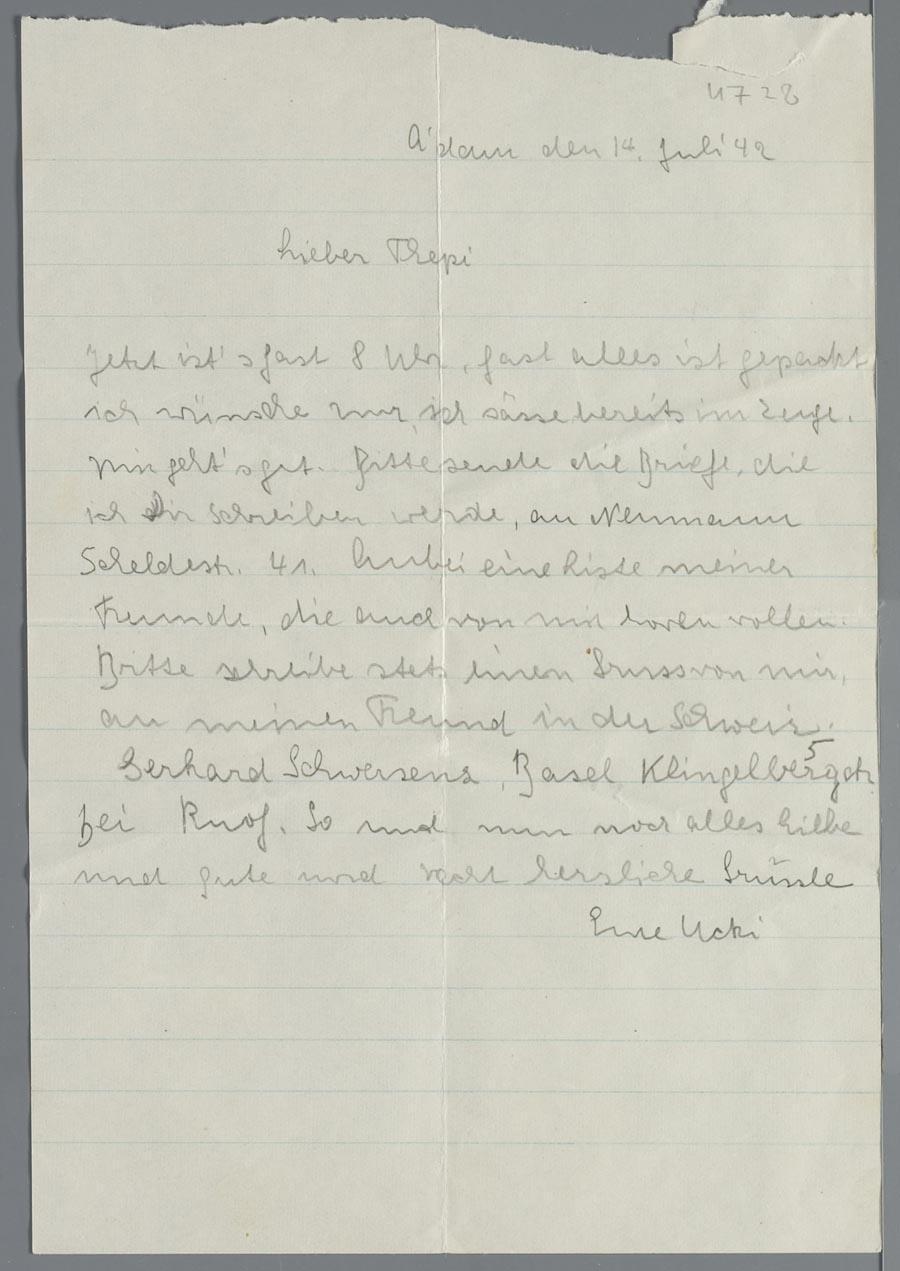 4728
A'dam den 14. Juli 42
Lieber Thepi
Jetzt ist's fast 8 Uhr, fast alles ist gepackt
ich wünsche nur, ich sässe bereits im Zuge.
Mir geht's gut. Bitte sende die Briefe, die
ich Dir schreiben werde, an Neumann
Scheldestr. 41. Anbei eine Liste meiner
Freunde, die auch von mir hören wollen.
Bitte schreibe stets einen Gruss von mir,
an meinen Freund in der Schweiz.
Gerhard Schwersenz, Basel Klingelbergstr 5
bei Ruof. So und nun noch alles Liebe
und gute und recht herzliche Grüsse
Eure Ucki